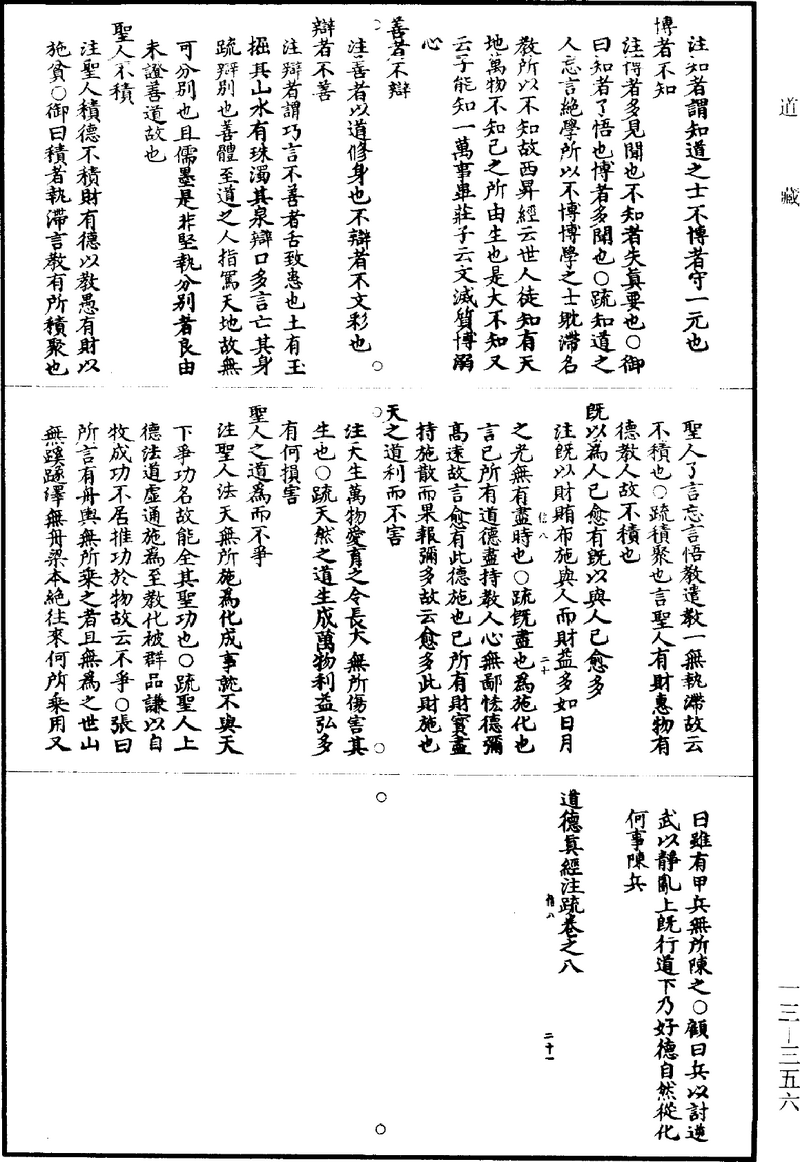 道藏
注知者謂知道之士不博者守一元也
博者不知
注博者多見聞也不知者失真要也○御
曰知者了悟也博者多聞也○疏知道之
人忘言絕學所以不博博學之士耽滯名
教所以不知故西昇經云世人徒知有天
地萬物不知己之所由生也是大不知又
云子能知一萬事畢莊子云文滅質博溺
心
善者不辯
注善者以道修身也不辯者不文彩也
辯者不善
注辯者謂巧言不善者舌致患也土有玉
掘其山水有珠濁其泉辯口多言亡其身
疏辯別也善體至道之人指罵天地故無
可分別也且儒墨是非堅執分別者良由
未證善道故也
聖人不積
注聖人積德不積財有德以教愚有財以
施貧○御曰積者執滯言教有所積聚也
聖人了言忘言悟教遣教一無執滯故云
不積也○疏積聚也言聖人有財惠物有
德教人故不積也
既以為人已愈有既以與人已愈多
注既以財賄布施與人而財益多如日月
之光無有盡時也○疏既盡也為施化也
信八 二十
言己所有道德盡持教人心無鄙怯德彌
高遠故言愈有此德施也己所有財寶盡
持施散而果報彌多故云愈多此財施也
天之道利而不害
注天生萬物愛育之令長大無所傷害其
生也○疏天然之道生成萬物利益弘多
有何損害
聖人之道為而不爭
注聖人法天無所施為化成事就不與天
下爭功名故能全其聖功也○疏聖人上
德法道虛通施為至教化被群品謙以自
牧成功不居推功於物故云不爭○張曰
所言有舟輿無所乘之者且無為之世山
無蹊隧澤無舟梁本絕往來何所乘用又
曰雖有甲兵無所陳之○顧曰兵以討逆
武以靜亂上既行道下乃好德自然從化
何事陳兵
道德真經注疏卷之八
信八 二十一
一三—三五六